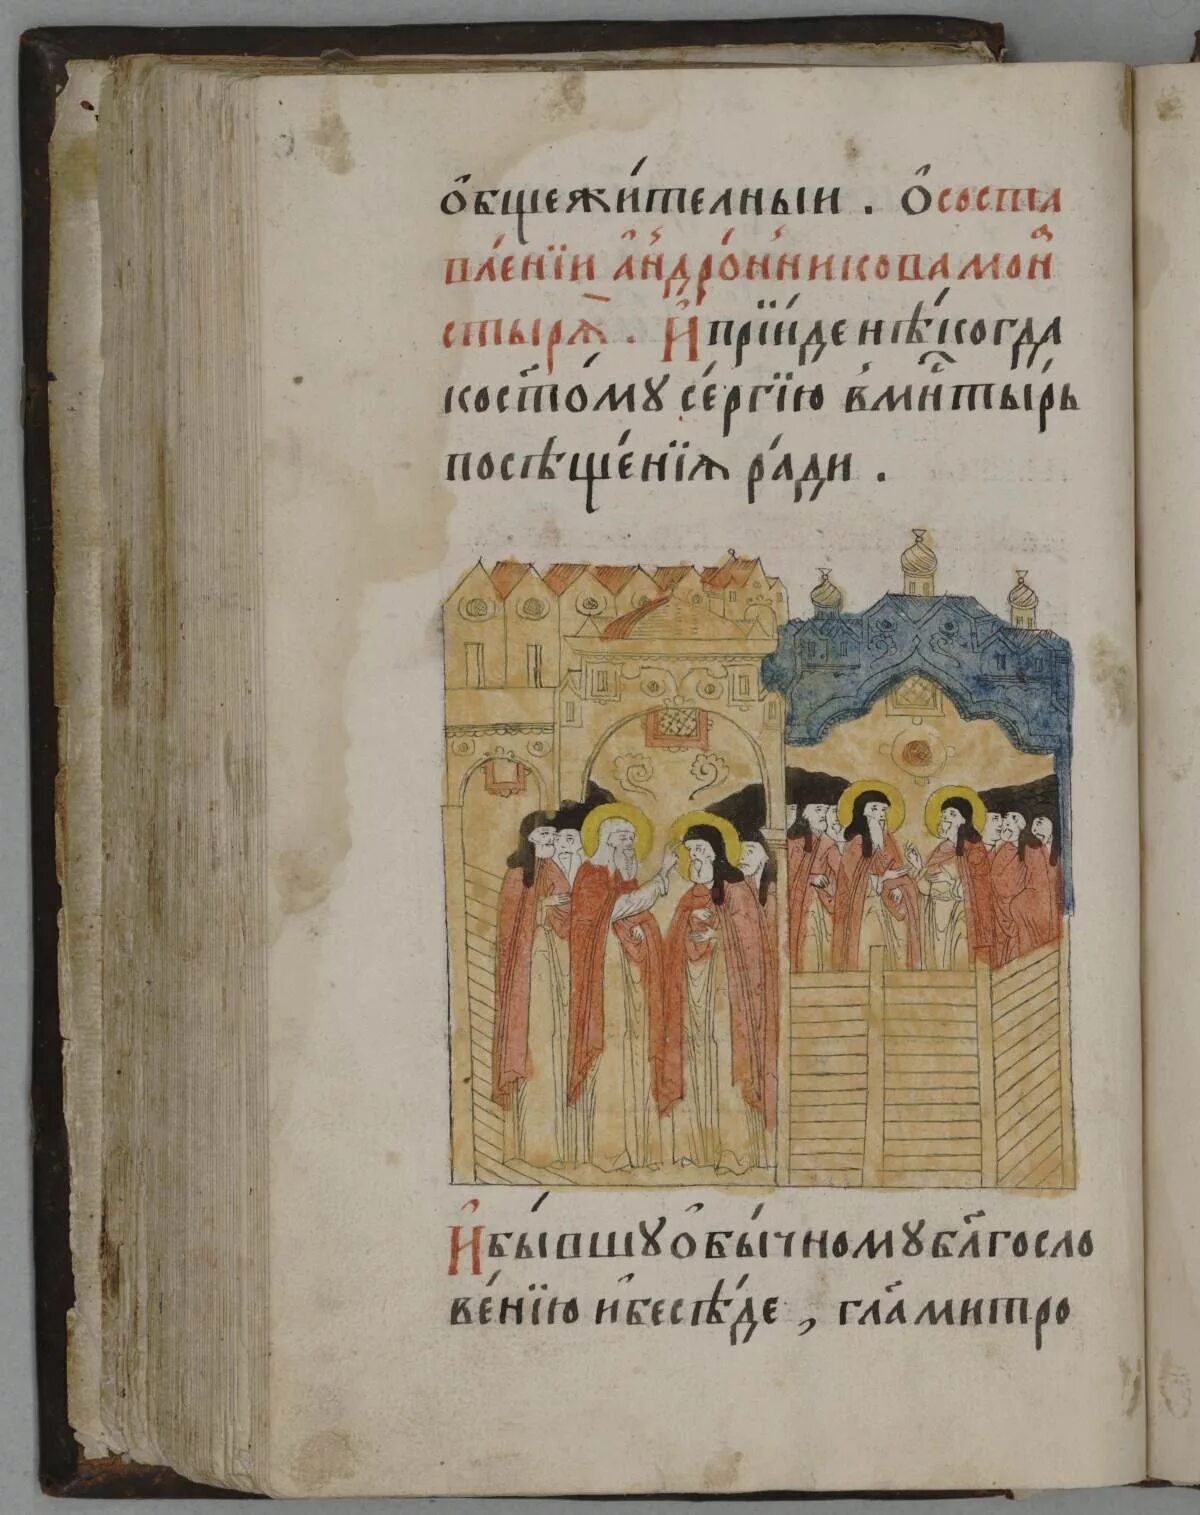 ѻ҆бщежи́телныи . Ѽ соста
вле́нїи а҆ндро́нникова мон
стырѧ̀ . И҆ прїи́де нѣ́когда
ко ст҃о́му се́ргїю в̾ мнⷭ҇ты́рь
посѣще́нїѧ ра́ди .
И҆ бы́вшу ѻ҆бы́чному блⷭ҇госло
ве́нїю и҆ бесѣ́де , гл҃а митро